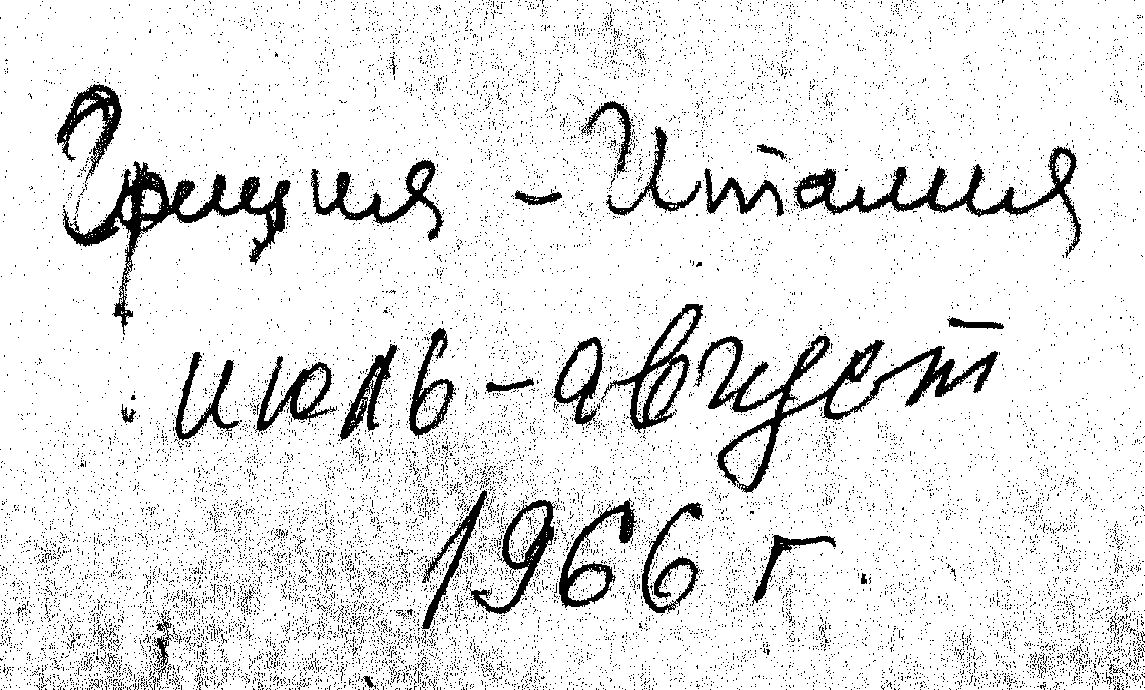 Греция - Италия
июль - август
1966 г.